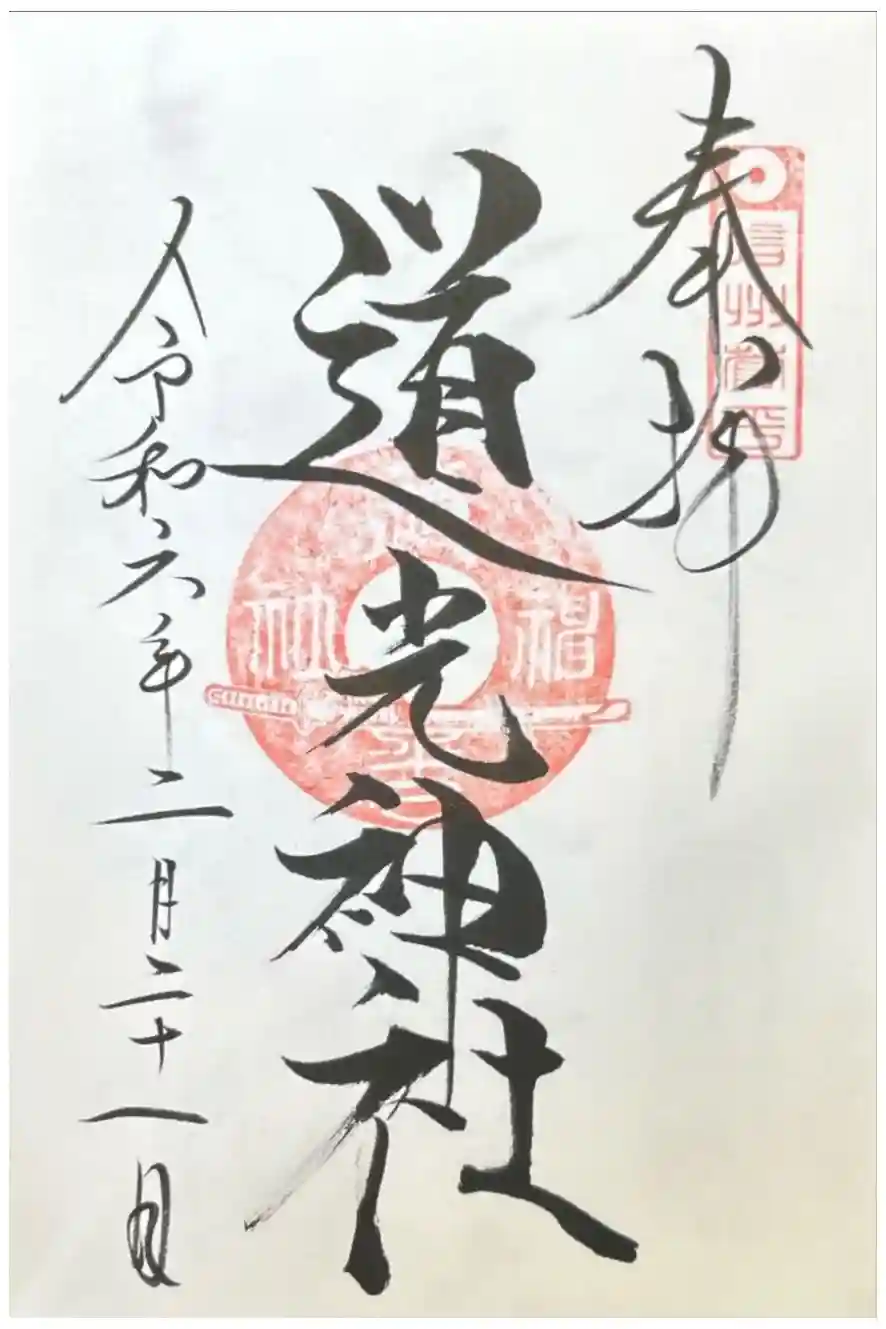 奉拝
信州
道光神社
令和六年二月二十一日